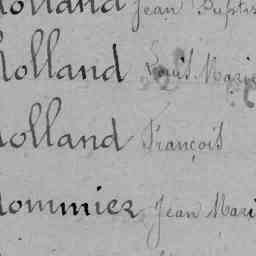 Rolland Jean Baptis
Rolland Louis Marie
Rolland François
Rommiez Jean Mari